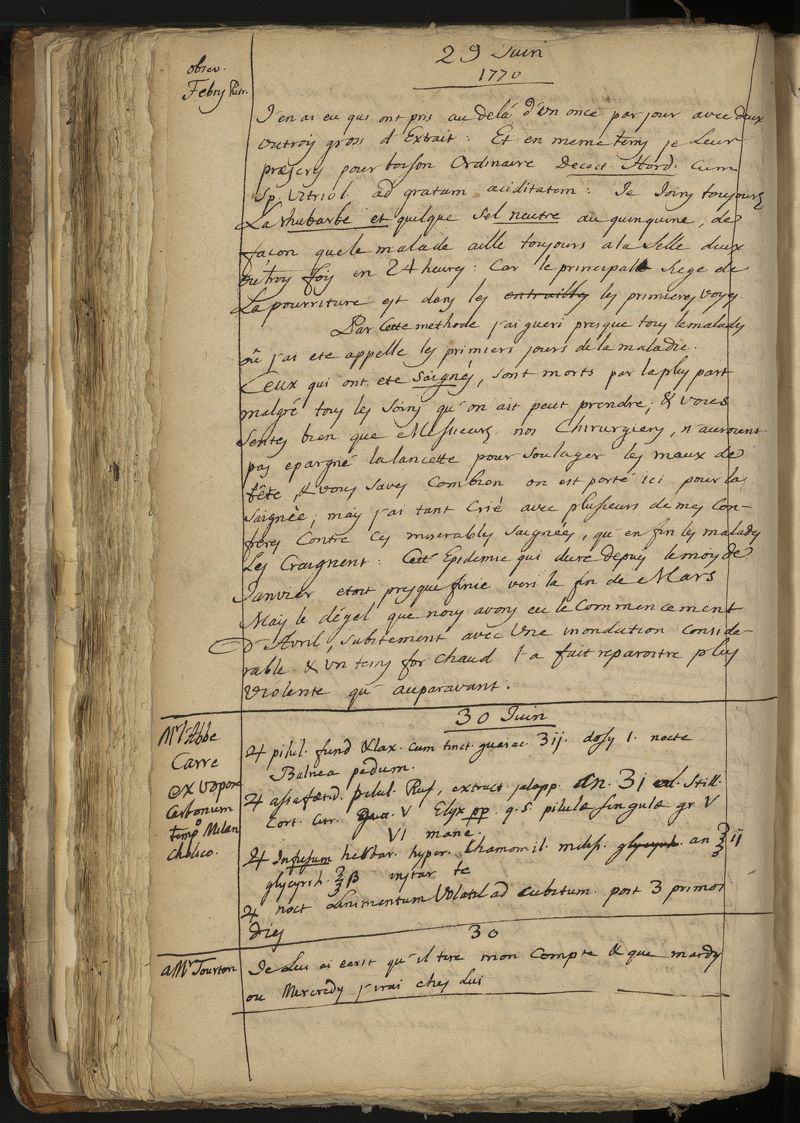 29 Juin
1770
observ.
Febry Putr.
J'en ai eu qui ont pris au delà d'un once par jour avec deux
ou troy gross d'Extrait : Et en meme temy je Leur
præscry pour boison Ordinaire Decoct. Hord. cum
Sp. Vitriol. ad gratam aciditatem : Je Joiny toujours
La rhubarbe et quelque Sel neutre au quinquine, de
façon que le malade aille toujours a la Selle deux
ou troy foiy en 24 heurey : Car le principale Siege de
La pourriture est dans ley entrailley ley premierey voyey
Par Cette methode j'ai gueri presque tous lemalady
où j'ai ete appellé ley premiers jours de la maladie.
Ceux qui ont ete Saignéy, Sont morts par la pluy part
malgré touy ley Soiny qu'on ait peut prendre ; & vous
Sentey bien que Messieurs noy Chirurgieny, n'auroient
pay epargné la lancette pour soulager ley maux de
tête, & vouy Savey Combien on est porté ici pour la
Saignée ; may j'ai tant Crié avec plusieurs de mey Con-
frerey Contre Cey miserabley Saignéey, qu'en fin ley malady
Ley Craignent : Cett Epidemie qui dure depuy le moy de
Janvier etoit presque finie vers la fin de Mars
May le dégel que nouy avony eu le Commencement
D'Avril, Subitement avec Une inondation Conside-
rable & Un temy for Chaud l'a fait reparoitre pluy
Violente qu'auparavant.
30 Juin
Mr l'Abbé
Carre
ex vapore
Carbonum
temp° Melan
cholico.
♃ pilul. fund. & lax. cum tinct. guaiac. ʒij. dosy 1. nocte
Balnea pedum.
♃ assafœtid. pilul. Ruf, extract. jalapp. an. ʒi ol. Still.
Cort. Citr. gutt. V Elyx pp q. s. pilulæ singulæ gr V
VI mane
♃ Infusum herbar. hyper. Chamomil. meliss. glycyrh. an ℥ij
glycyrih. ℥ß instar te
♃ noct Linimentum Volatil ad Cubitum. post 3 primos
diey
30
a Mr Tourton
Je Lui ai ecrit qu'il tire mon Compte & que mardy
ou Mercredy j'irai chey Lui